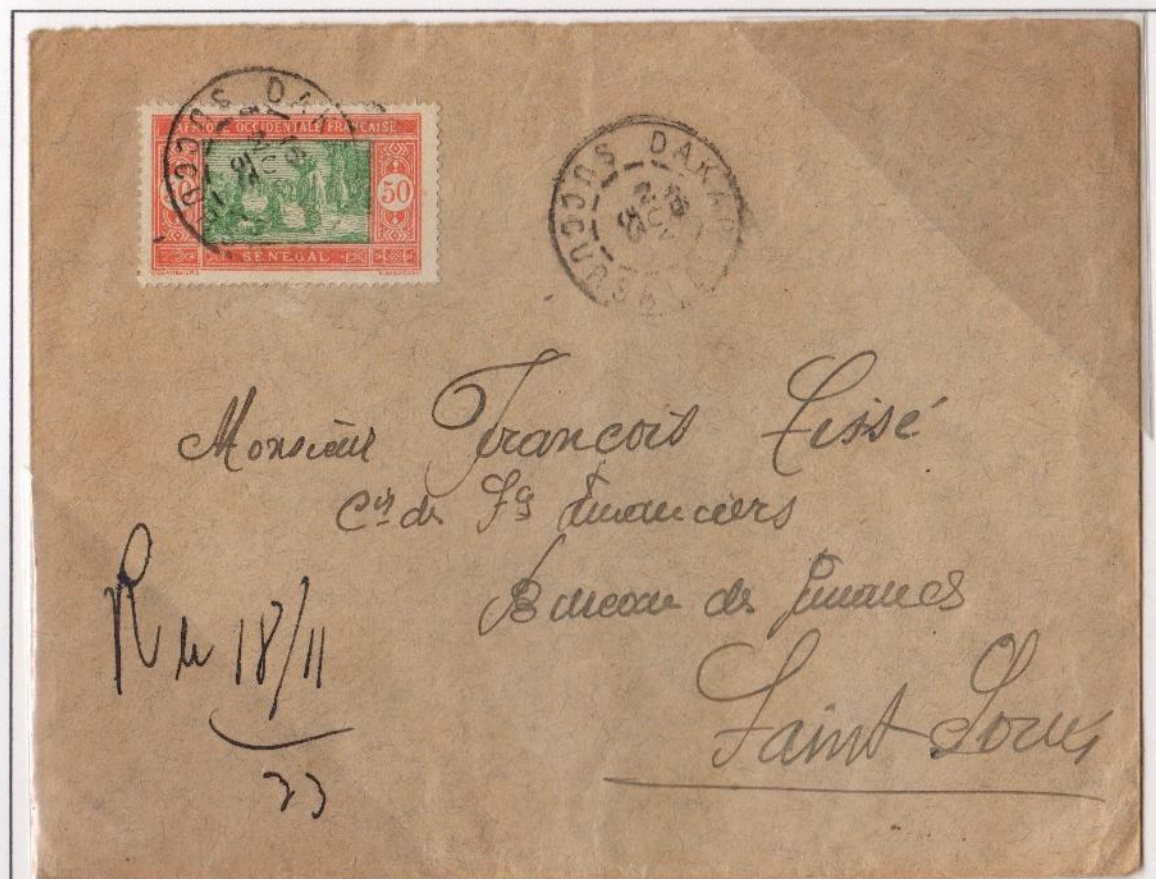 AFRIQUE OCCIDENTALE FRANÇAISE
50 50
SÉNÉGAL
DAKAR SUCCURSALE
DAKAR SUCCURSALE
Monsieur François Cissé
Cis de Financiers
Bureau de finances
Saint Louis
R le 18/11
33